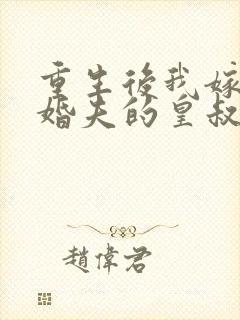 重生後我嫁
婚夫的皇叔
趙偉君